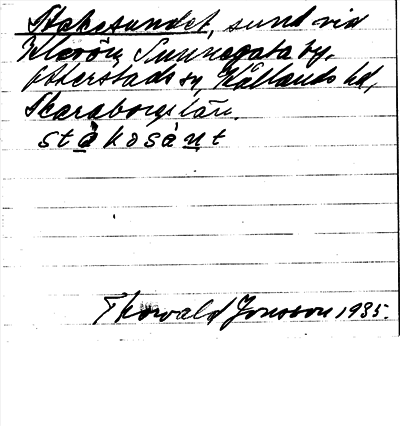 Stakasundet, sund vid
Klerön, Sunnegata by,
Otterstads sn, Kållands hd,
Skaraborgs län.
stàkosánt
Thorvald Jonsson 1935.